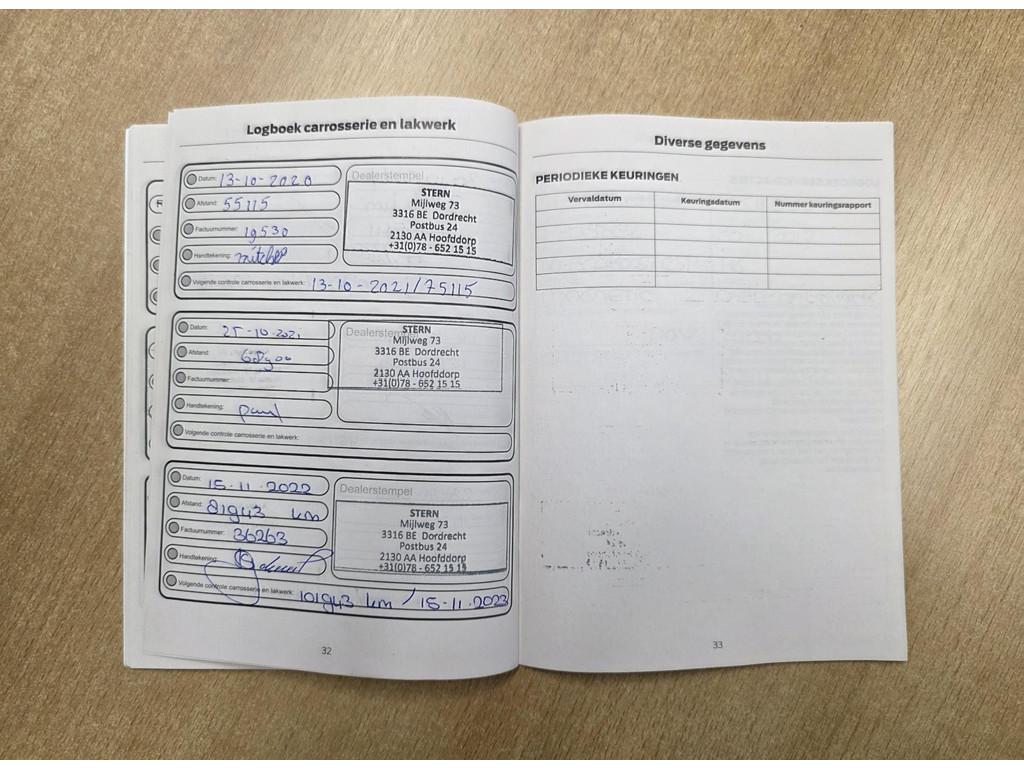 Logboek carrosserie en lakwerk
Datum: 13-10-2020
Afstand: 55115
Factuurnummer: 19530
Handtekening: mitchel
Volgende controle carrosserie en lakwerk: 13-10-2021/75115
Dealerstempel
STERN
Mijlweg 73
3316 BE Dordrecht
Postbus 24
2130 AA Hoofddorp
+31(0)78 - 652 15 15
Datum: 25-10-2021
Afstand:
Factuurnummer:
Handtekening: paul
Volgende controle carrosserie en lakwerk:
Dealerstempel
STERN
Mijlweg 73
3316 BE Dordrecht
Postbus 24
2130 AA Hoofddorp
+31(0)78 - 652 15 15
Datum: 15-11-2022
Afstand: 81943 km
Factuurnummer: 36263
Handtekening:
Volgende controle carrosserie en lakwerk: 101943 km / 15-11-2023
Dealerstempel
STERN
Mijlweg 73
3316 BE Dordrecht
Postbus 24
2130 AA Hoofddorp
+31(0)78 - 652 15 15
32
Diverse gegevens
PERIODIEKE KEURINGEN
Vervaldatum Keuringsdatum Nummer keuringsrapport
33